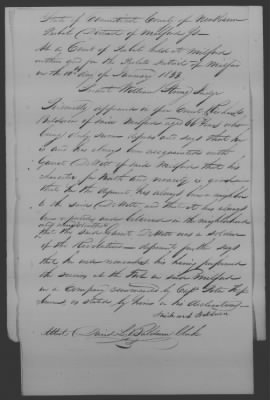 State of Connecticut County of New Haven
Probate District of Milford Ss
At a Court of Probate holden at Milford
within and for the Probate District of Milford
on the day of January 1833
Present William Strong Judge
Personally appeared in open Court
Baldwin of said Milford aged 66 Years who
being duly Sworn deposes and says that he
is and has always been acquainted with
Garret DeWitt of said Milford that his
character for truth and veracity is good
that he the deponent has always been neighbor
to the said DeWitt and that he has always
been reputed and believed in the neighborhood
that the said Garret DeWitt was a soldier
of the Revolution deponent further says
that he well remembers his having performed
the service at the Fort in said Milford
in a Company commanded by Capt Peter
as stated by him in his declaration
Baldwin
Attest David L. Baldwin Clerk